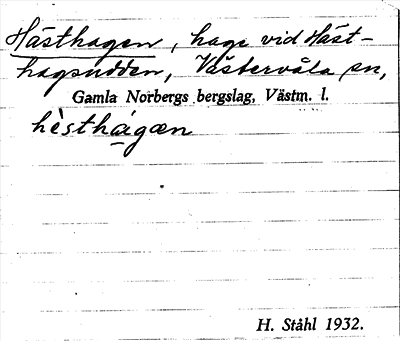 Hästhagen, hage vid Häst-
hagsudden, Västervåla sn,
Gamla Norbergs bergslag, Västm. l.
hèsthа̀gæn
H. Ståhl 1932.